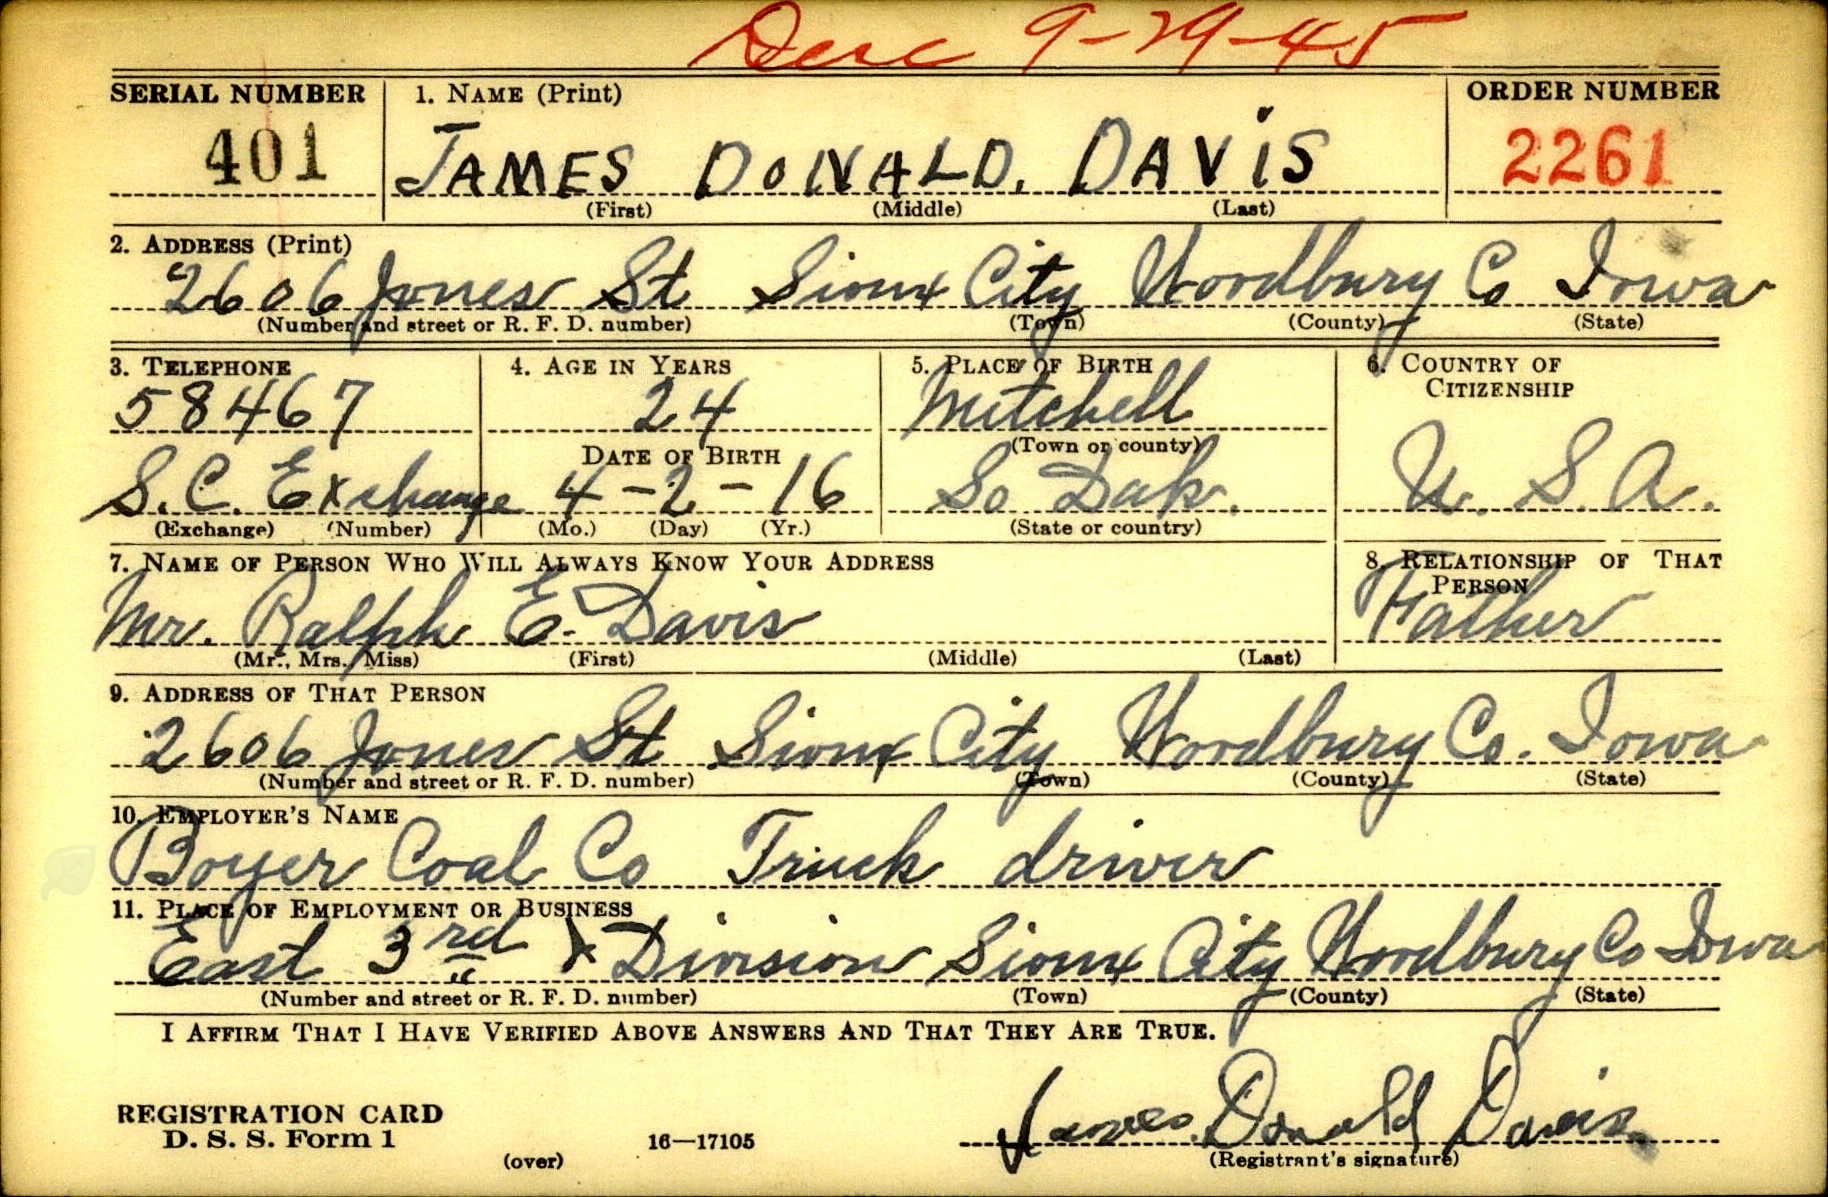 Disc 9-29-45
SERIAL NUMBER 1. NAME (Print) ORDER NUMBER
401 JAMES DONALD. DAVIS 2261
(First) (Middle) (Last)
2. ADDRESS (Print)
2606 Jones St Sioux City Woodbury Co Iowa
(Number and street or R. F. D. number) (Town) (County) (State)
3. TELEPHONE 4. AGE IN YEARS 5. PLACE OF BIRTH 6. COUNTRY OF
CITIZENSHIP
58467 24 Mitchell
DATE OF BIRTH (Town or county)
S.C. Exchange 4-2-16 So Dak. U.S.A.
(Exchange) (Number) (Mo.) (Day) (Yr.) (State or country)
7. NAME OF PERSON WHO WILL ALWAYS KNOW YOUR ADDRESS 8. RELATIONSHIP OF THAT
PERSON
Mr. Ralph E. Davis Father
(Mr., Mrs. Miss) (First) (Middle) (Last)
9. ADDRESS OF THAT PERSON
2606 Jones St Sioux City Woodbury Co. Iowa
(Number and street or R. F. D. number) (Town) (County) (State)
10. EMPLOYER'S NAME
Boyer Coal Co Truck driver
11. PLACE OF EMPLOYMENT OR BUSINESS
East 3rd & Division Sioux City Woodbury Co Iowa
(Number and street or R. F. D. number) (Town) (County) (State)
I AFFIRM THAT I HAVE VERIFIED ABOVE ANSWERS AND THAT THEY ARE TRUE.
REGISTRATION CARD James Donald Davis
D. S. S. Form 1 16—17105
(over) (Registrant's signature)